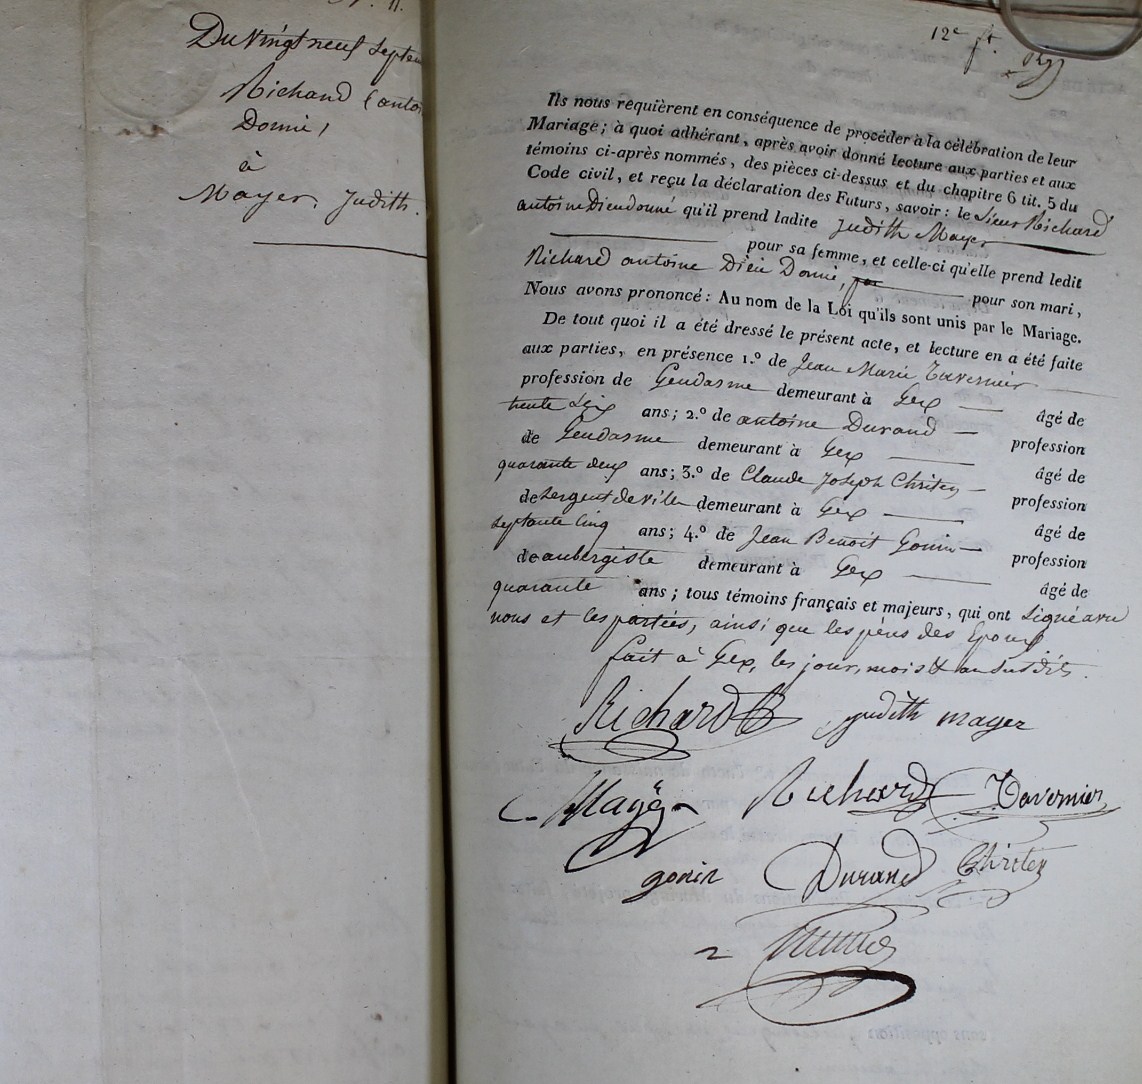 N.° 11.
Du Vingt neuf Septem
Richard (antoi
Donné)
à
Mayer, Judith.
12e ft.
Ils nous requièrent en conséquence de procéder à la célébration de leur
Mariage ; à quoi adhérant, après avoir donné lecture aux parties et aux
témoins ci-après nommés, des pièces ci-dessus et du chapitre 6 tit. 5 du
Code civil, et reçu la déclaration des Futurs, savoir : le Sieur Richard
antoine Dieudonné qu'il prend ladite Judith Mayer
pour sa femme, et celle-ci qu'elle prend ledit
Richard antoine Dieu Donné, pour son mari,
Nous avons prononcé : Au nom de la Loi qu'ils sont unis par le Mariage.
De tout quoi il a été dressé le présent acte, et lecture en a été faite
aux parties, en présence 1.° de Jean Marie Tavernier
profession de Gendarme demeurant à Gex âgé de
trente Six ans ; 2.° de antoine Durand profession
de Gendarme demeurant à Gex âgé de
quarante deux ans ; 3.° de Claude Joseph Chriten profession
de Sergent de Ville demeurant à Gex âgé de
septante Cinq ans ; 4.° de Jean Benoit Gonin profession
de aubergiste demeurant à Gex âgé de
quarante ans ; tous témoins français et majeurs, qui ont Signé avec
nous et les parties, ainsi que les pères des Epoux
fait à Gex, les jour, mois & an susdits.
Richard judith mayer
Mayer Richard Tavernier
gonin Durand Chriten